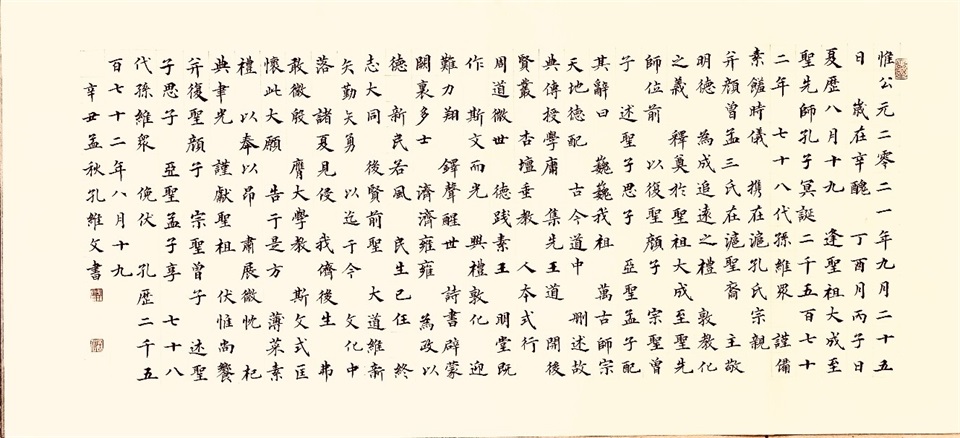 惟公元二零二一年九月二十五
日 歲在辛醜 丁酉月丙子日
夏歷八月十九 逢聖祖大成至
聖先師孔子冥誕二千五百七十
二年 七十八代孫維眾 謹備
素饈時儀 携在滬孔氏宗親
并顏曾孟三氏在滬聖裔 主敬
明德 為成追遠之禮 敦教化
之義 釋奠於聖祖大成至聖先
師位前 以復聖顏子 宗聖曾
子 述聖子思子 亞聖孟子配
其辭曰 巍巍我祖 萬古師宗
天地德配 古今道中 刪述故
典 傳授學庸 集先王道 開後
賢叢 杏壇垂教 人本式行
周道微世 德踐素王 明堂既
作 斯文而光 興禮敦化 迎
難力翔 鐸聲醒世 詩書辟蒙
闕裏多士 濟濟雍雍 為政以
德 新民若風 民生己任 終
志大同 後賢前聖 大道維新
矢勤矢勇 以迄于今 文化中
落 諸夏見侵 我儕後生 弗
敢微殷 膺大學教 斯文式匡
懷此大願 告于是方 薄菜素
禮 以奉以昂 肅展微忱 杞
典聿光 謹獻聖祖 伏惟尚饗
并復聖顏子 宗聖曾子 述聖
子思子 亞聖孟子享 七十八
代孫維眾 俛伏 孔歷二千五
百七十二年八月十九
辛丑孟秋孔維文書